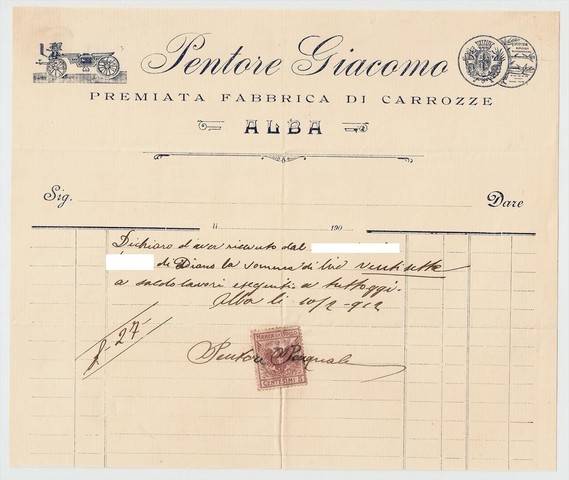 Pentore Giacomo
PREMIATA FABBRICA DI CARROZZE
ALBA
Sig. Dare
li 190
Dichiaro d'aver ricevuto dal
di Diano la somma di lire ventisette
a saldo lavori eseguiti a tutt'oggi.
Alba li 10/2-912
£-27-
MARCA DA BOLLO
Pentore Pasquale
CENTESIMI 5